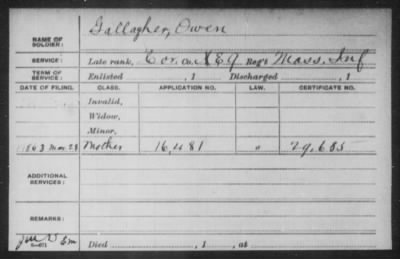 Gallagher, Owen
NAME OF
SOLDIER:
SERVICE: Late rank, Cor. Co. E 9 Reg't Mass. Inf
TERM OF
SERVICE: Enlisted , 1 Discharged , 1
DATE OF FILING. CLASS. APPLICATION NO. LAW. CERTIFICATE NO.
Invalid,
Widow,
Minor,
1863 Mar 28 Mother 16,481 " 29,685
ADDITIONAL
SERVICES:
REMARKS:
Died , 1 , at